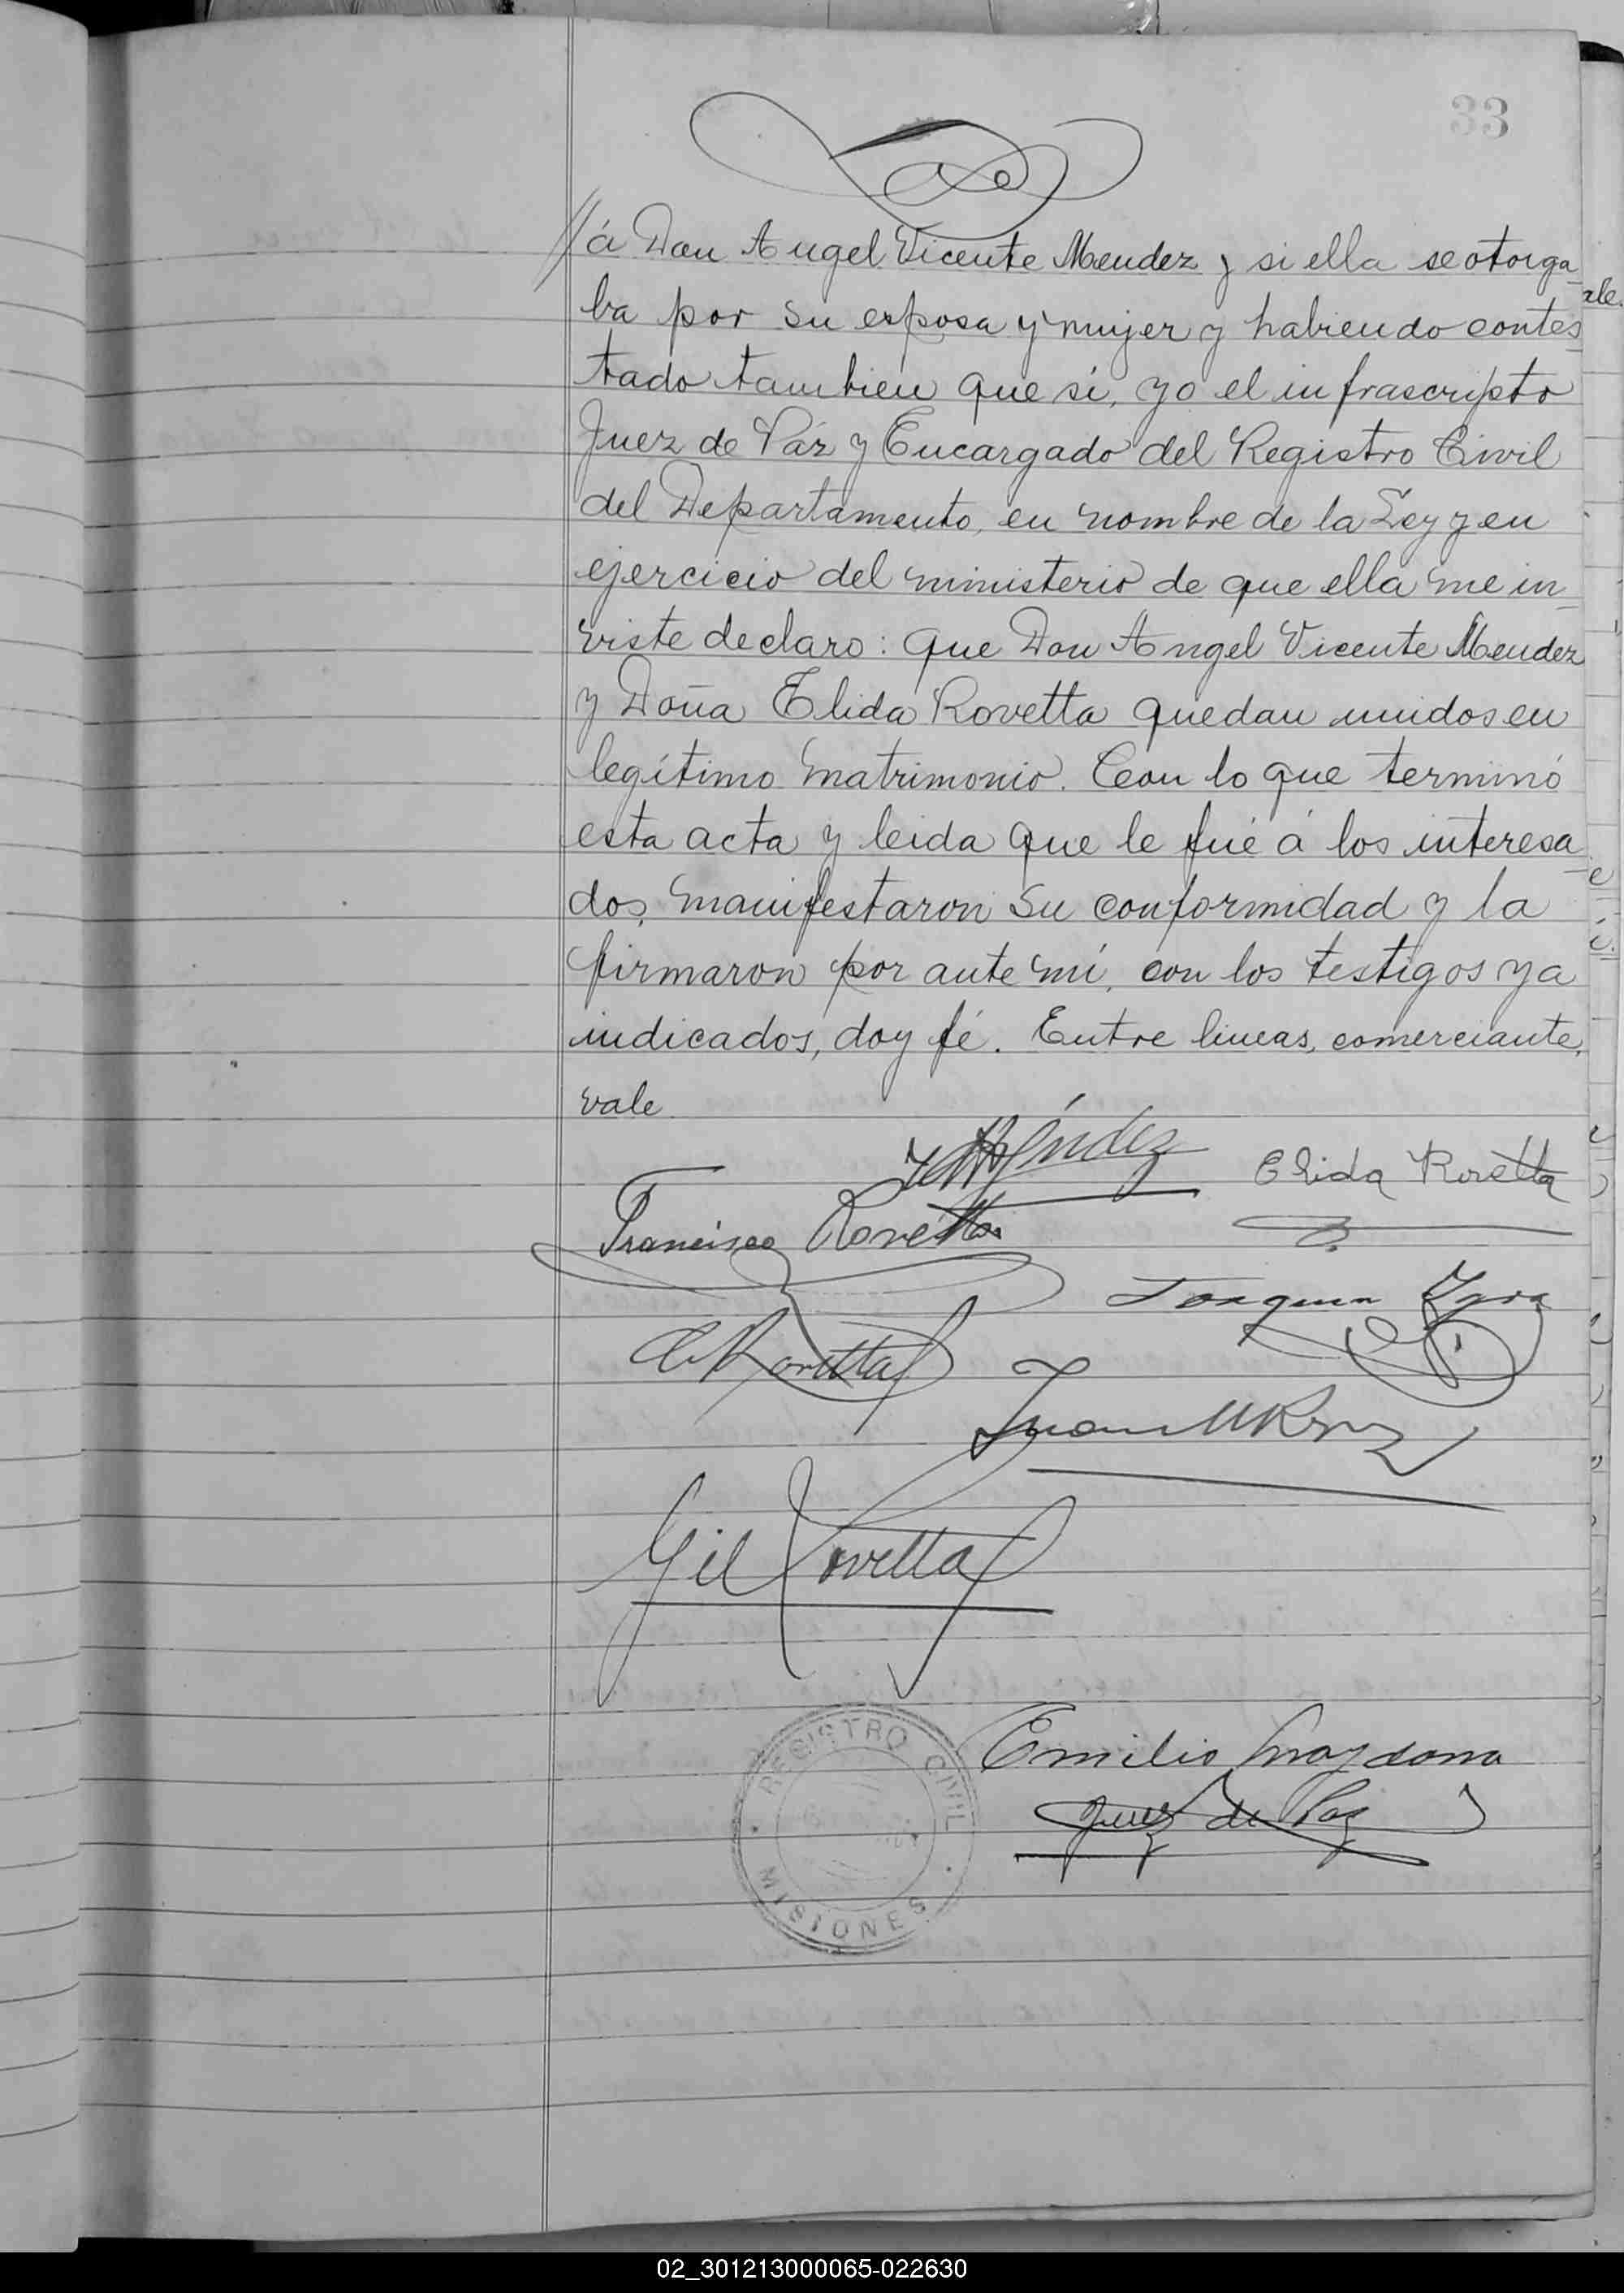 33
//á Don Angel Vicente Mendez y si ella se otorga-
ba por su esposa y mujer y habiendo contes-
tado tambien que si, yo el infrascripto
Juez de Páz y Encargado del Registro Civil
del Departamento, en nombre de la Ley y en
ejercicio del ministerio de que ella me in-
viste declaro: que Don Angel Vicente Mendez
y Doña Elida Rovetta quedan unidos en
legítimo matrimonio. Con lo que terminó
esta acta y leida que le fué á los interesa-
dos, manifestaron su conformidad y la
firmaron por ante mí, con los testigos ya
indicados, doy fé. Entre lineas, comerciante,
vale.
Méndez Elida Rovetta
Francisco Rovetta
Joaquin
Rovetta
Juan
Gil Rovetta
REGISTRO CIVIL
MISIONES
Emilio
Juez de Paz
02_301213000065-022630